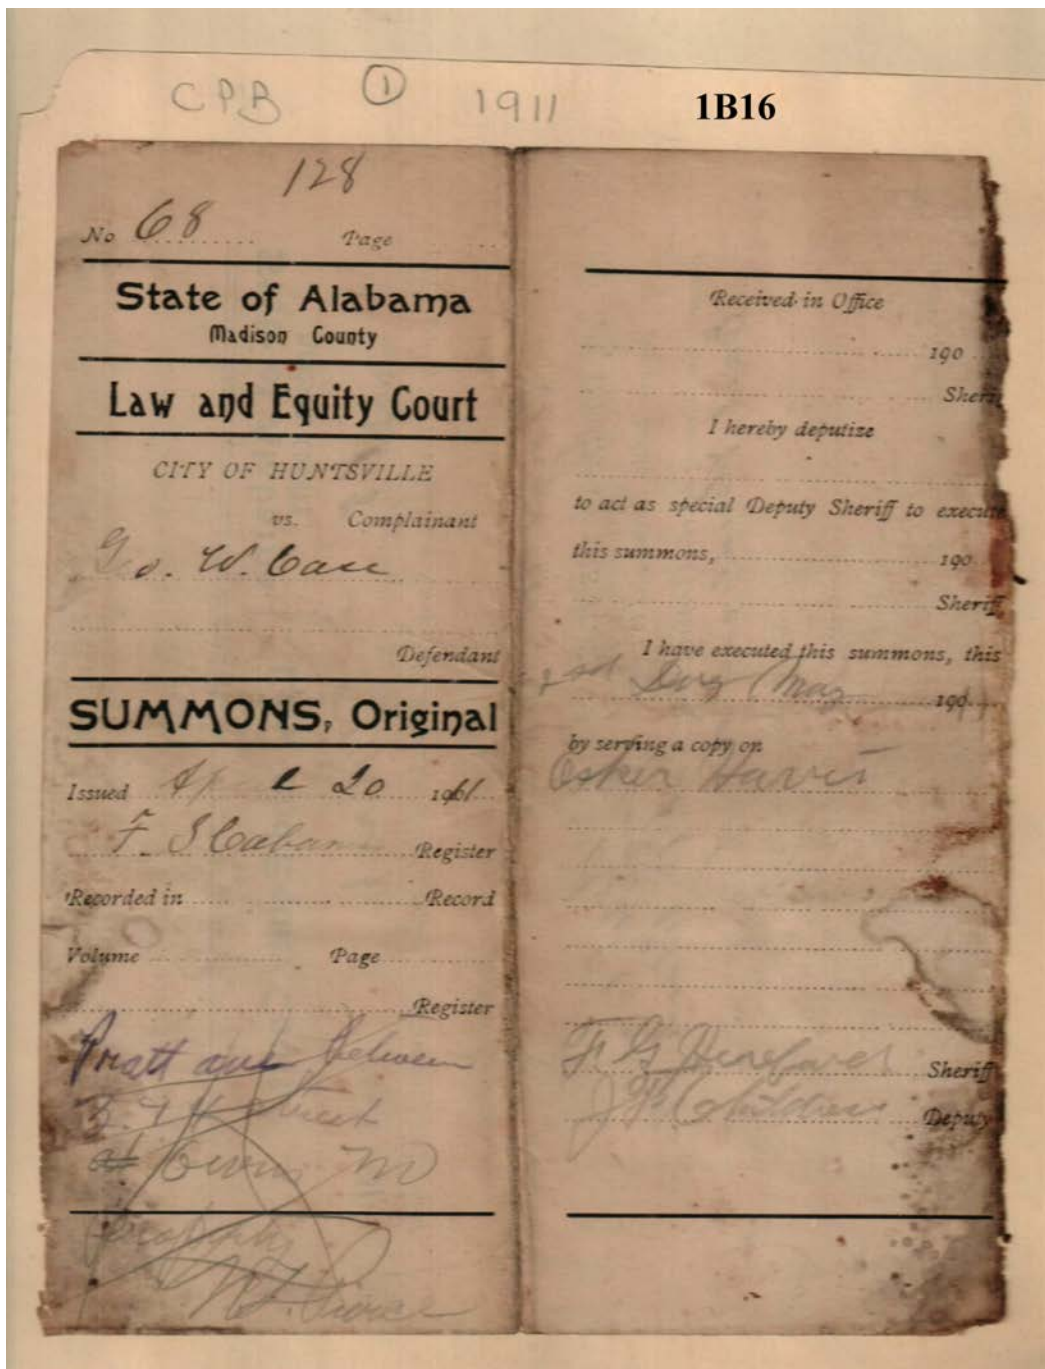 CPB ① 1911 1B16
128
No 68 Page
State of Alabama
Madison County
Law and Equity Court
CITY OF HUNTSVILLE
vs. Complainant
Geo. W. Case
Defendant
SUMMONS, Original
Issued April 20 1911
F. S. Register
Recorded in Record
Volume Page
Register
Pratt ave Between
Street
at Owens
Received in Office
190
Sheriff
I hereby deputize
to act as special Deputy Sheriff to execute
this summons, 190
Sheriff
I have executed this summons, this
Day May 190
by serving a copy on
Osker Harris
F. G. Sheriff
Childress Deputy